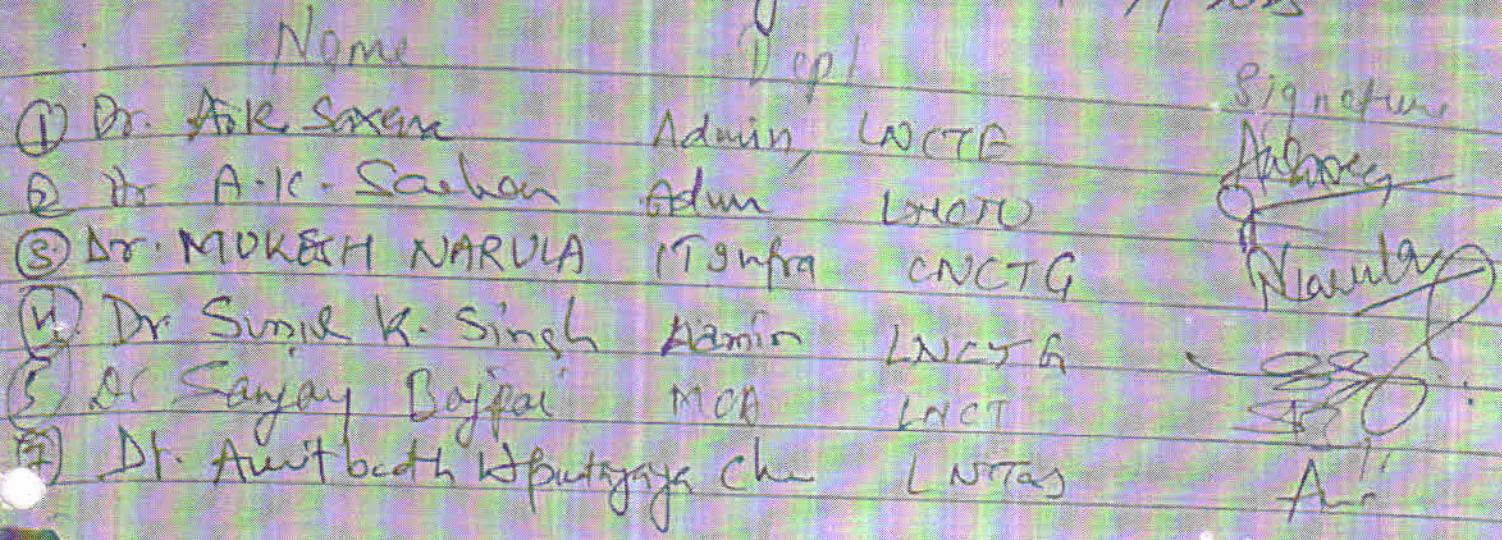 Name Dept Signature
① Dr. A.K. Saxena Admin, LNCTE
② Dr A.K. Admin LNCTU
③ Dr. MUKESH NARULA ITInfra LNCTG Narula
④ Dr. Sunil K. Singh Admin LNCTG
⑤ Dr Sanjay Bajpai MCA LNCT
⑦ Dr. Amitbodh Upadhyaya